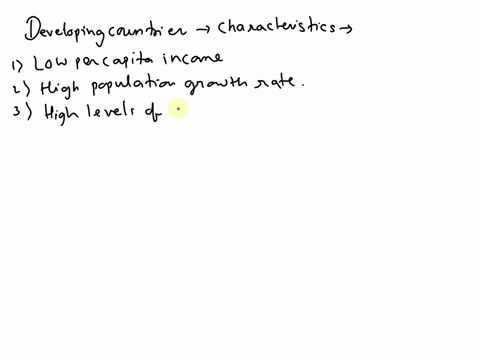 Developing countries → characteristics →
1) Low per capita income
2) High population growth rate.
3) High levels of